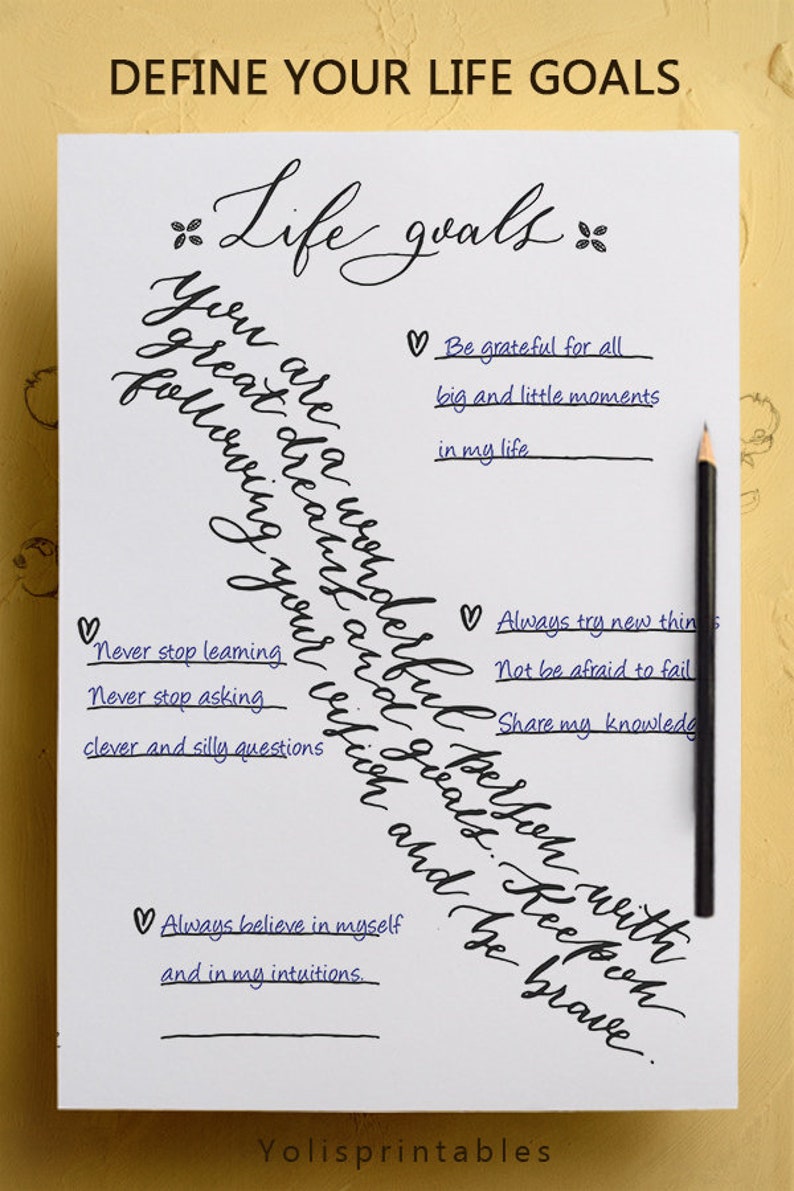 DEFINE YOUR LIFE GOALS
Life goals
You are a wonderful person with
great dreams and goals. Keep on
following your vision and be brave.
Be grateful for all
big and little moments
in my life
Never stop learning
Never stop asking
clever and silly questions
Always try new things
Not be afraid to fail
Share my knowledg
Always believe in myself
and in my intuitions.
Yolisprintables